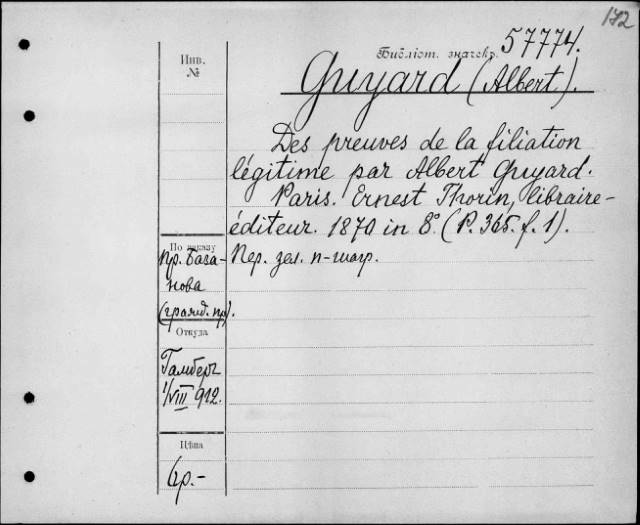 172
Библіот. значекъ 57774.
Инв.
№
Guyard (Albert).
Des preuves de la filiation
légitime par Albert Guyard.
Paris. Ernest Thorin, libraire-
éditeur. 1870 in 8° (P. 365. f. 1).
По заказу
Пр. База-
нова
(гражд. пр).
Пер. зел. п-шагр.
Откуда
Гамберг
1/VIII 912.
Цѣна
6р.-